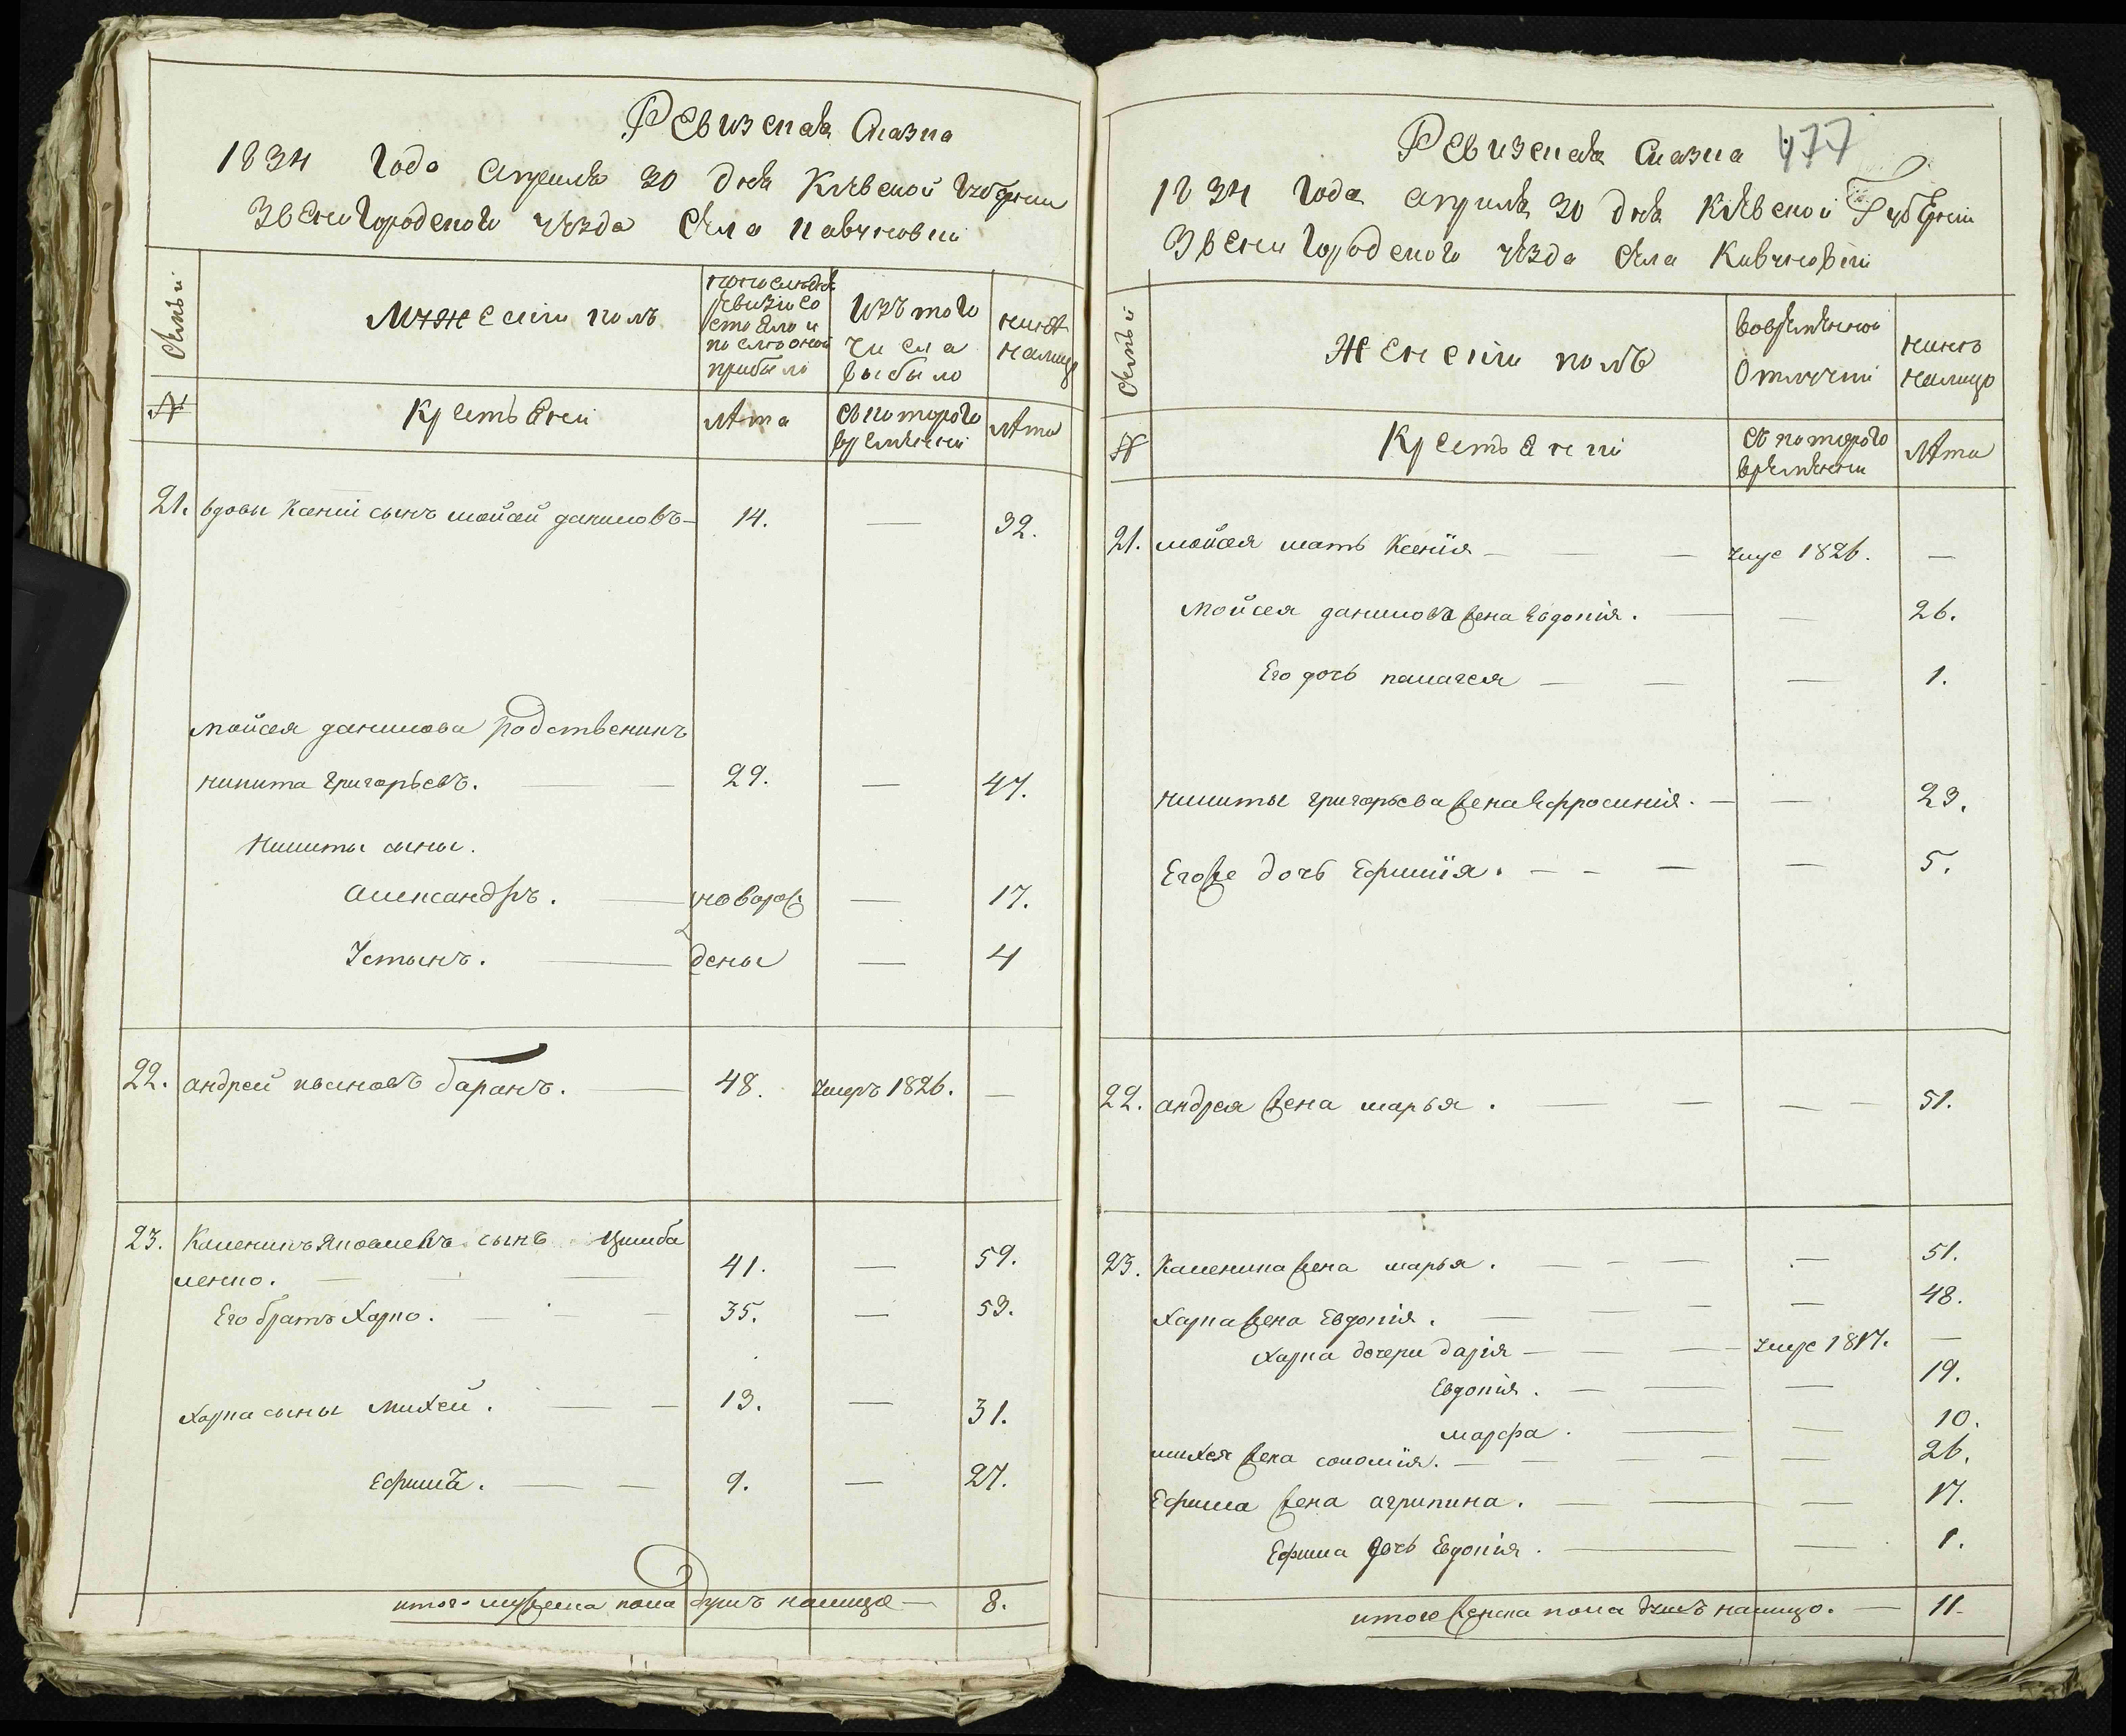 Ревизская Сказка
1834 Года Априля 30 дня Кіевской Губерніи
Звенигородского уѣзда Села Кавуновки
Семьи
Мужескій полъ
по последней
ревизіи со
стояло и
после оной
прибыло
Изъ того
числа
выбыло
нынѣ
налицо
№
Крестьяни
Лѣта
Съ которого
времѣни
Лѣта
21. вдовы Ксеніи сынъ мойсей даниловъ — 14. — 32.
мойсея данилова родственикъ
никита григорьевъ. — 29. — 47.
Никиты сыны.
александръ. — новорож — 17.
Устынъ. — дены — 4
22. андрей ивановъ баранъ. — 48. умеръ 1826. —
23. Каленикъ Яковлевъ сынъ Цимба
ленко. — 41. — 59.
Его братъ Харко. — 35. — 53.
Харка сыны михей. — 13. — 31.
Ефимъ. — 9. — 27.
итого мужеска пола душъ налицо — 8.
Ревизская Сказка 477
1834 Года априля 30 дня Кіевской Губерніи
Звенигородского уѣзда Села Кавуновки
Семьи
Женскій полъ
Вовремѣнной
Отлучки
нынѣ
налицо
№
Крестьянки
Съ которого
времѣни
Лѣта
21. мойсея мать Ксенія — умре 1826. —
Мойсея данилова жена Евдокія. — 26.
Его дочь палагея — 1.
никиты григорьева жена Ефросинія. — 23.
Егоже дочь Ефимія. — 5.
22. андрея жена марья. — 51.
23. Каленика жена марья. — 51.
Харка жена Евдокія. — 48.
Харка дочери дарія — умре 1817. —
Евдокія. — 19.
марфа. — 10.
михея жена соломія. — 26.
Ефима жена агрипина. — 17.
Ефима дочь Евдокія. — 1.
итого женска пола душъ налицо. — 11.